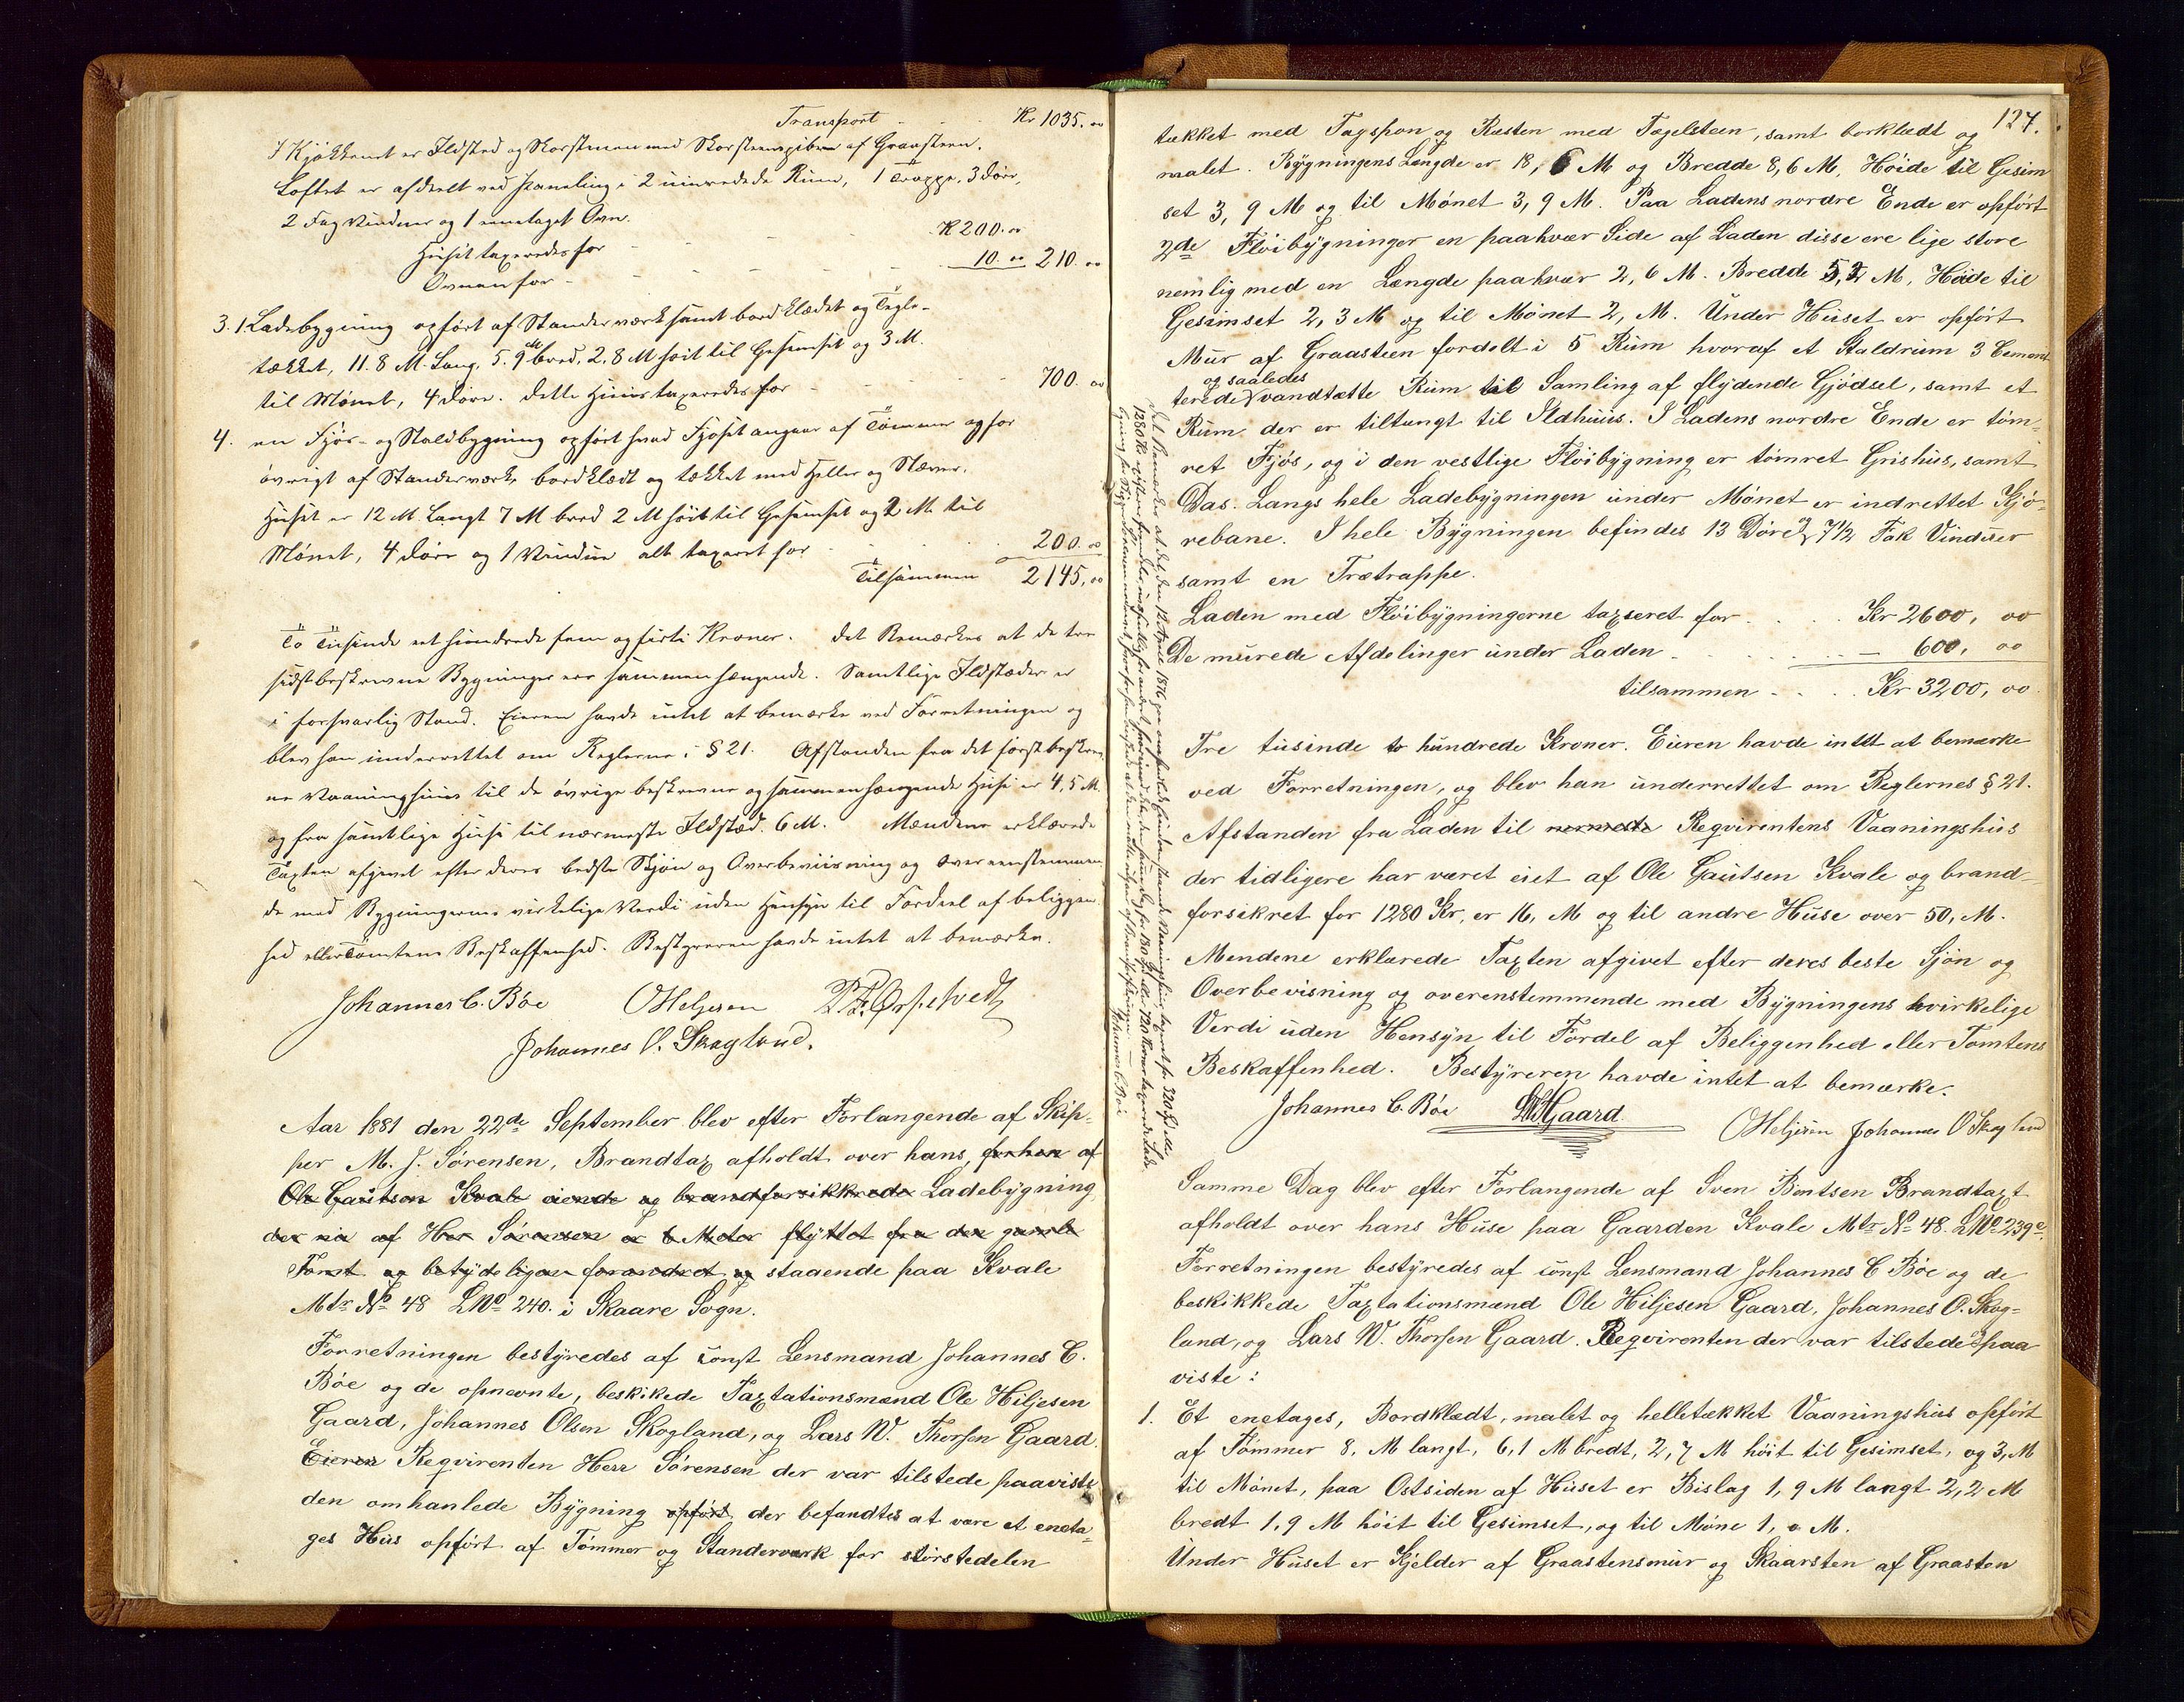 Transport - - Kr 1035. 00
I Kjøkkenet er Ildsted og Skorsteen med Skorsteenspibe af Graasteen.
Loftet er afdeelt ved Paneling i 2 uinredede Rum, 1 Trappe, 3 Døre,
2 Fag Vinduer og 1 eenetages Ovn.
Huset taxeredes for - - - - K 200. 00
Ovnen for - - - - 10. 00 210. 00
3. 1 Ladebygning opført af Standerværk samt bordklædt og Tegl-
tækket, 11.8 M. Lang, 5.9 M bred, 2.8 M høit til Gesimset og 3 M.
til Mønet, 4 Døre. dette Huus taxeredes for - - - - 700. 00
4. en Fjøs- og Staldbygning opført hvad Fjøset angaar af Tømmer og for
øvrigt af Standerværk, bordklædt og tækket med Heller og Næver.
Huset er 12 M. Langt 7 M bred 2 M høit til Gesimset og 2 M til
Mønet, 4 Døre og 1 Vindue alt taxeret for - - 200. 00
Tilsammen 2145, 00
To Tusinde et hundrede fem og firti Kroner. Det Bemærkes at de tre
sidst beskrevne Bygninger er sammenhængende. Samtlige Ildsteder er
i forsvarlig Stand. Eieren havde intet at bemærke ved Forretningen og
blev han underrettet om Reglerne i § 21. Afstanden fra det først beskrev-
ne Vaaningshuus til de øvrige beskrevne og sammenhængende Huse er 4,5 M.
og fra samtlige Huse til nærmeste Ildsted. 6 M. Mændene erklærede
Taxten afgivet efter deres bedste Skjøn og Overbeviisning og overeensstemmen-
de med Bygningernes virkelige Værdi uden Hensyn til Fordeel af beliggen-
hed eller Tomtens Beskaffenhed. Bestyreren havde intet at bemærke.
Johannes C. Bøe OHeljesen
Johannes O. Skogland.
Aar 1881 den 22de September blev efter Forlangende af Skip-
per M. J. Sørensen, Brandtax afholdt over hans, forhen af
Ole Gautsen Kvale eiende og brandforsikkrede Ladebygning,
der nu af Her Sørensen er 6 Meter flyttet fra den gamle
Tomt og betydeligen forandret og staaende paa Kvale
Mtr No 48 LNo 240. i Skaare Sogn.
Forretningen bestyredes af const Lensmand Johannes C.
Bøe og de opnevnte, beskikede Taxtationsmænd Ole Hiljesen
Gaard, Johannes Olsen Skogland, og Lars W. Thorsen Gaard.
Eieren Reqvirenten Herr Sørensen der var tilstede paaviste
den omhanlede Bygning opført der befandtes at være et eneta-
ges Hus opført af Tømmer og Standerværk for størstedelen
127.
tækket med Tagspon og Resten med Tægelsteen, samt borklædt og
malet. Bygningens Længde er 18, 6 M og Bredde 8,6 M, Høide til Gesim
set 3, 9 M og til Mønet 3, 9 M. Paa Ladens nordre Ende er opført
2de Fløibygninger en paahvær Side af Laden disse ere lige store
nemlig med en Længde paahvær 2, 6 M. Bredde 5,2 M, Høide til
Gesimset 2, 3 M og til Mønet 2, M. Under Huset er opført
Mur af Graasteen fordelt i 5 Rum hvoraf et Staldrum 3 Cemen-
og saaledes
terede vandtætte Rum til Samling af flydende Gjødsel, samt et
Rum der er tiltængt til Ildhuus. I Ladens nordre Ende er tøm-
ret Fjøs, og i den vestlige Fløibygning er tømret Grishus, samt
Das. Langs hele Ladebygningen under Mønet er indrettet Kjø-
rebane. I hele Bygningen befindes 13 Døre og 7½ Fak Vinduer
samt en Trætrappe.
Laden med Fløibygningerne taxseret for . . . . . Kr 2600, 00
De murede Afdelinger under Laden - . . . . . . — 600, 00
tilsammen - . . . Kr 3200, 00.
Tre tusinde to hundrede Kroner. Eieren havde intet at bemærke
ved Forretningen, og blev han underrettet om Reglernes § 21.
Afstanden fra Laden til nærmeste Reqvirentens Vaaningshus
der tidligere har været eiet af Ole Gautsen Kvale og brand-
forsikret for 1280 Kr, er 16, M og til andre Huse over 50, M.
Mendene erklærede Taxten afgivet efter deres beste Sjøn og
Overbevisning og overenstemmende med Bygningens hvirkelige
Verdi uden Hensyn til Fordel af Beliggenhed eller Tomtens
Beskaffenhed. Bestyreren havde intet at bemærke.
Johannes C. Bøe Gaard. OHeljesen Johannes O Skogland
Samme Dag blev efter Forlangende af Sven Bentsen Brandtaxt
afholdt over hans Huse paa Gaarden Kvale Mtr No 48. LNo 239e.
Forretningen bestyredes af const Lensmand Johannes C Bøe og de
beskikkede Taxtationsmænd Ole Hiljesen Gaard, Johannes O. Skog-
land, og Lars W. Thorsen Gaard. Reqvirenten der var tilstede paa
viste:
1. Et enetages, Bordklædt, malet og helletækket Vaaningshus opført
af Tømmer 8, M langt, 6,1 M bredt, 2,7 M høit til Gesimset, og 3, M
til Mønet, paa Ostsiden af Huset er Bislag 1, 9 M langt 2,2 M
bredt 1,9 M høit til Gesimset, og til Møne 1, 0 M.
Under Huset er Kjelder af Graastensmur og Skaarsten af Graasten